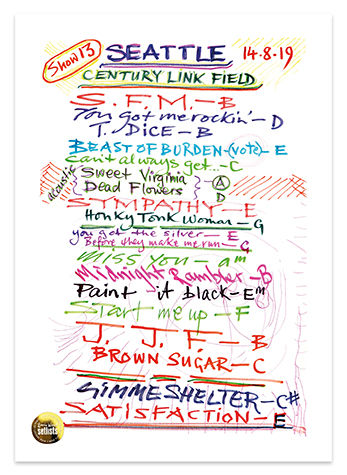 Show 13
SEATTLE 14.8.19
CENTURY LINK FIELD
S.F.M. - B
You got me rockin' - D
T. DICE - B
BEAST OF BURDEN - (vote) - E
Can't always get... - C
acoustic { Sweet Virginia } - A
Dead Flowers } D
SYMPATHY - E
Honky Tonk Woman - G
you got the silver - E
Before they make me run - G
Miss you - am
Midnight Rambler - B
Paint it black - Em
Start me up - F
J. J. F. - B
BROWN SUGAR - C
GIMME SHELTER - C#
SATISFACTION - E
setlists